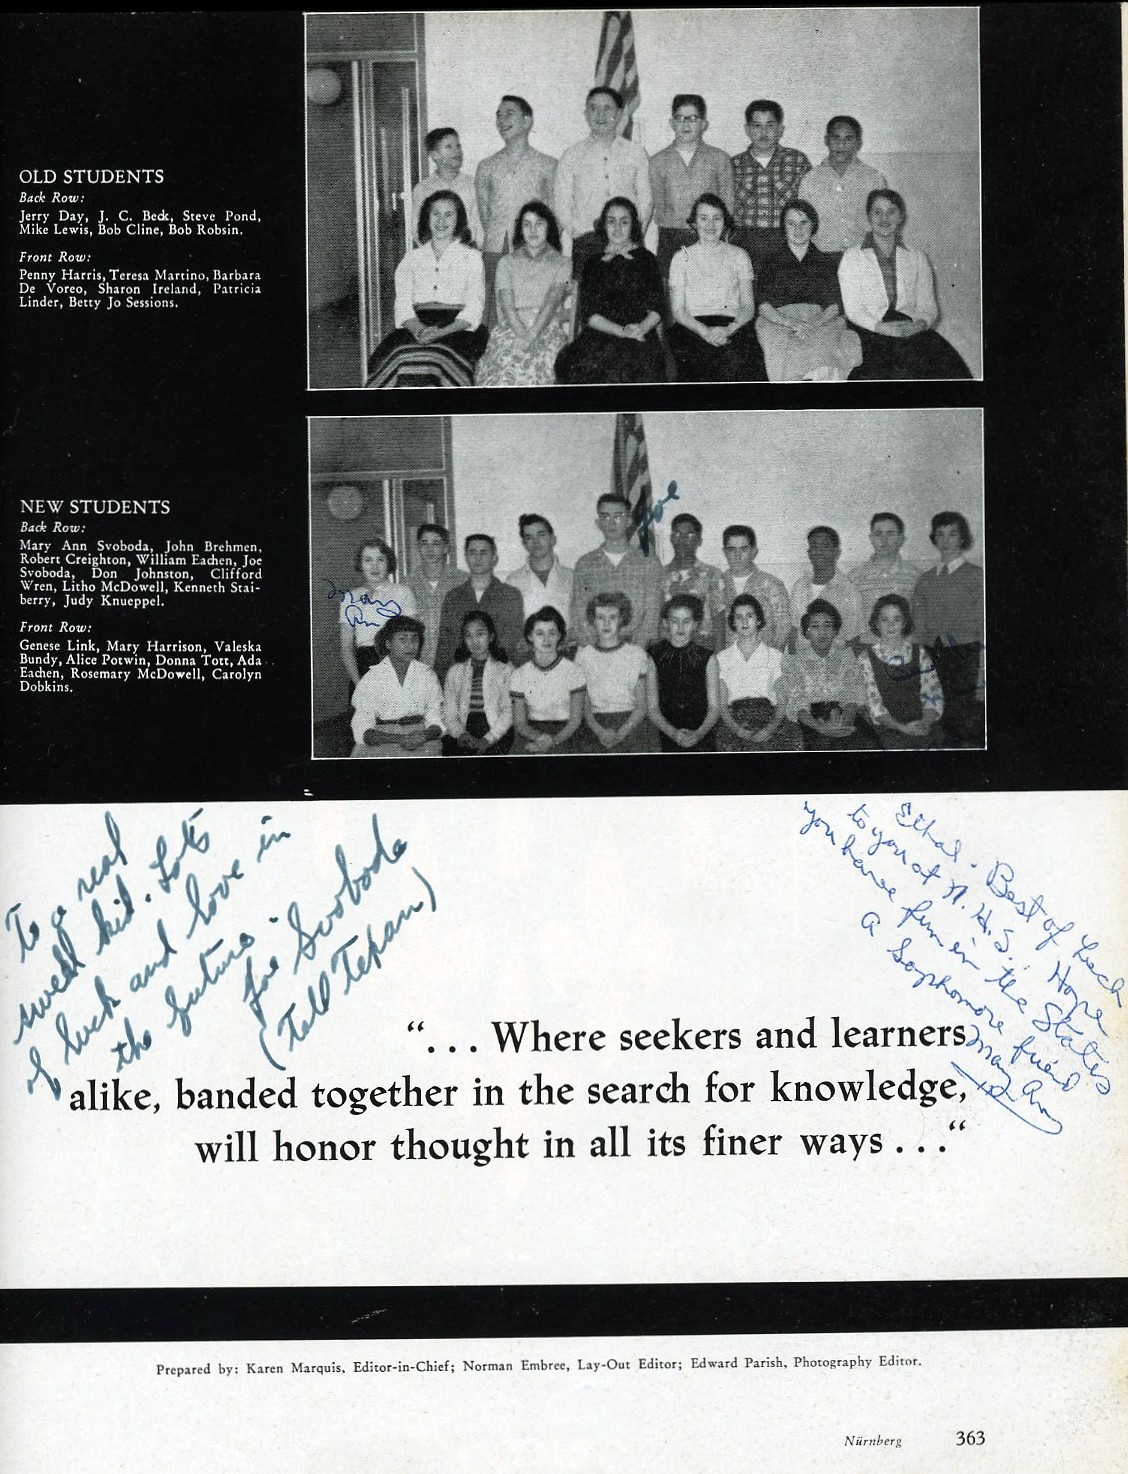 OLD STUDENTS
Back Row:
Jerry Day, J. C. Beck, Steve Pond,
Mike Lewis, Bob Cline, Bob Robsin.
Front Row:
Penny Harris, Teresa Martino, Barbara
De Voreo, Sharon Ireland, Patricia
Linder, Betty Jo Sessions.
NEW STUDENTS
Back Row:
Mary Ann Svoboda, John Brehmen,
Robert Creighton, William Eachen, Joe
Svoboda, Don Johnston, Clifford
Wren, Litho McDowell, Kenneth Stai-
berry, Judy Knueppel.
Front Row:
Genese Link, Mary Harrison, Valeska
Bundy, Alice Potwin, Donna Tott, Ada
Eachen, Rosemary McDowell, Carolyn
Dobkins.
Joe
Mary
Ann
To a real
swell kid. Lots
of luck and love in
the future.
Joe Svoboda
(Tall Texan)
Ethal. Best of luck
to you at N.H.S. Hope
you have fun in the States
a Sophomore friend
Mary Ann
“... Where seekers and learners
alike, banded together in the search for knowledge,
will honor thought in all its finer ways ...“
Prepared by: Karen Marquis, Editor-in-Chief; Norman Embree, Lay-Out Editor; Edward Parish, Photography Editor.
Nürnberg 363